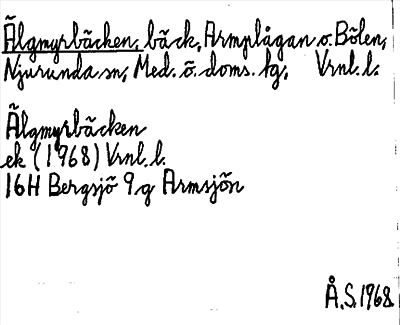 Älgmyrbäcken, bäck, Armplågan o. Bölen,
Njurunda sn, Med. ö. doms. tg, Vrnl. l.
Älgmyrbäcken
ek (1968) Vrnl. l.
16H Bergsjö 9 g Armsjön
Å.S. 1968